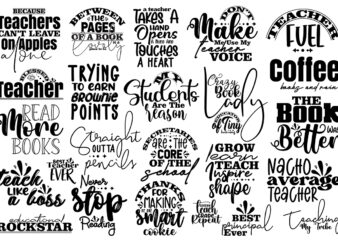 BECAUSE
Teachers
CAN'T LEAVE
on Apples
alone
BETWEEN
THE
PAGES
OF A BOOK
lovely
a teacher
TAKES A
HAND
OPENS
A
TOUCHES
A HEART
DON'T
Make
Me/Use My
TEACHER
VOICE
TEACHER
FUEL
Coffee
books and rain
BLESSED
Teacher
READ
More
BOOKS
TRYING
TO EARN
BROWNIE
POINTS
My
Students
ARE THE
REASON
Crazy
Book
Lady
THE
BOOK
Was
Better
Straight
OUTTA
pencils
SECRETARIES
ARE THE
CORE OF
THE
SCHOOL
OF Tiny
GROW
learn
TEACH
INSPIRE
shape
NACHO
average
TEACHER
TEACHER
EVER
teach
Like
a boss
Never
Stop
Reading
THANKS
FOR
MAKING
smart
cookie
Teach
Repeat
BEST
principal
Ever
educational
ROCKSTAR
Teaching
My Tribe